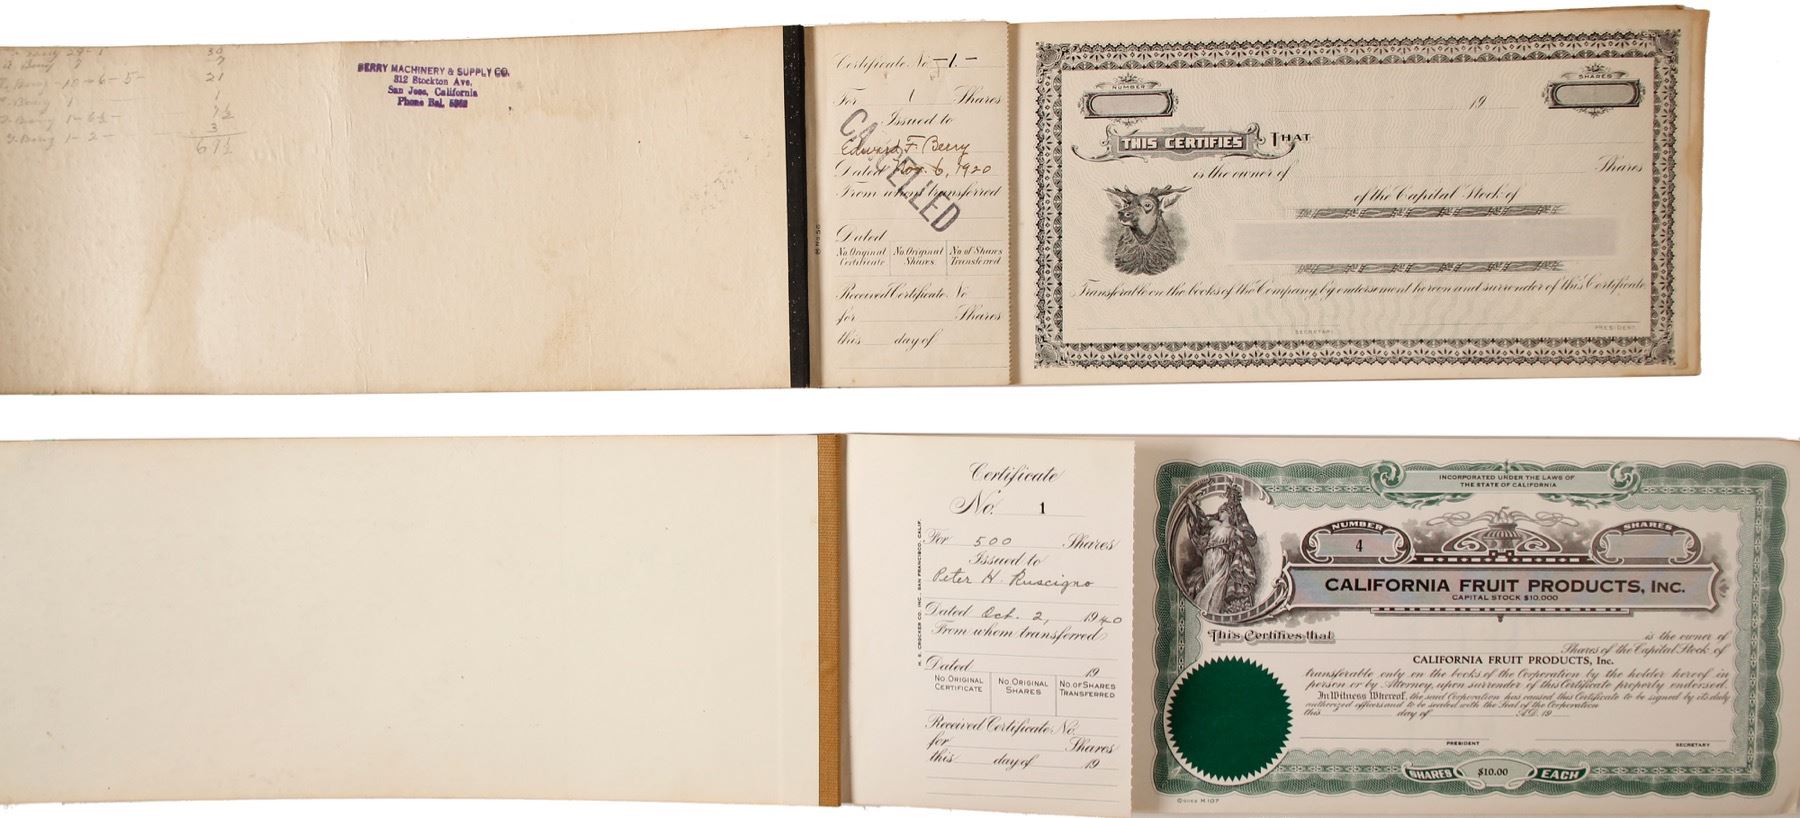 Berry 29-1 30
Berry 7 7
Berry - 10-6-5- 21
Berry 1 1
Berry 1-6½- 7½
Berry 1-2- 3
BERRY MACHINERY & SUPPLY CO.
312 Stockton Ave.
San Jose, California
Phone Bal.
Certificate No -1-
For 1 Shares
Issued to
Edward F. Berry
Dated Nov. 6, 1920
From whom transferred
CANCELLED
Dated
No. Original Certificate
No. Original Shares
No. of Shares Transferred
Received Certificate No
for Shares
this day of
NUMBER
SHARES
19
THIS CERTIFIES THAT
is the owner of Shares
of the Capital Stock of
Transferable on the books of the Company, by endorsement hereon and surrender of this Certificate.
SECRETARY
PRESIDENT
Certificate
No. 1
For 500 Shares
Issued to
Peter H. Ruscigno
Dated Oct. 2, 1940
From whom transferred
Dated 19
NO. ORIGINAL CERTIFICATE
NO. ORIGINAL SHARES
NO. OF SHARES TRANSFERRED
Received Certificate No.
for Shares
this day of 19
H. S. CROCKER CO. INC., SAN FRANCISCO, CALIF.
INCORPORATED UNDER THE LAWS OF
THE STATE OF CALIFORNIA
NUMBER
4
SHARES
CALIFORNIA FRUIT PRODUCTS, INC.
CAPITAL STOCK $10,000
This Certifies that is the owner of
Shares of the Capital Stock of
CALIFORNIA FRUIT PRODUCTS, Inc.
transferable only on the books of the Corporation by the holder hereof in
person or by Attorney, upon surrender of this Certificate properly endorsed.
In Witness Whereof, the said Corporation has caused this Certificate to be signed by its duly
authorized officers and to be sealed with the Seal of the Corporation
this day of A.D. 19
PRESIDENT
SECRETARY
SHARES $10.00 EACH